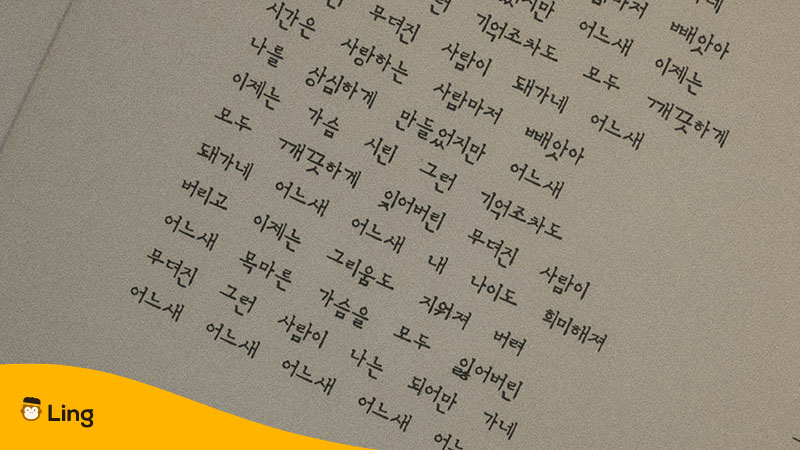 네
마저 빼앗아
지만 어느새 이제는
런 기억조차도 모두 깨끗하게
무뎌진 사람이 돼가네 어느새
시간은 사랑하는 사람마저 빼앗아
나를 상심하게 만들었지만 어느새
이제는 가슴 시린 그런 기억조차도
모두 깨끗하게 잊어버린 무뎌진 사람이
돼가네 어느새 어느새 내 나이도 희미해져
버리고 이제는 그리움도 지워져 버려
어느새 목마른 가슴을 모두 잃어버린
무뎌진 그런 사람이 나는 되어만 가네
어느새 어느새 어느새 어느새 어느
Ling